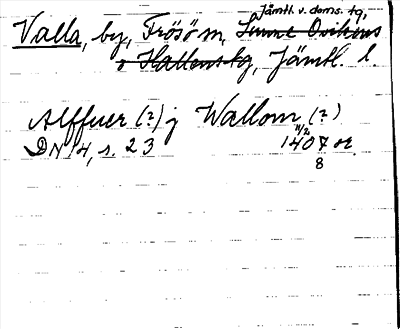 Jämtl. v. doms. tg,
Valla, by, Frösö sn, Sunne Ovikens
o Hallens tg, Jämtl. l.
Alffuer (?) j Wallom (?)
DN 14, s. 23 11/2 1407 or.
8